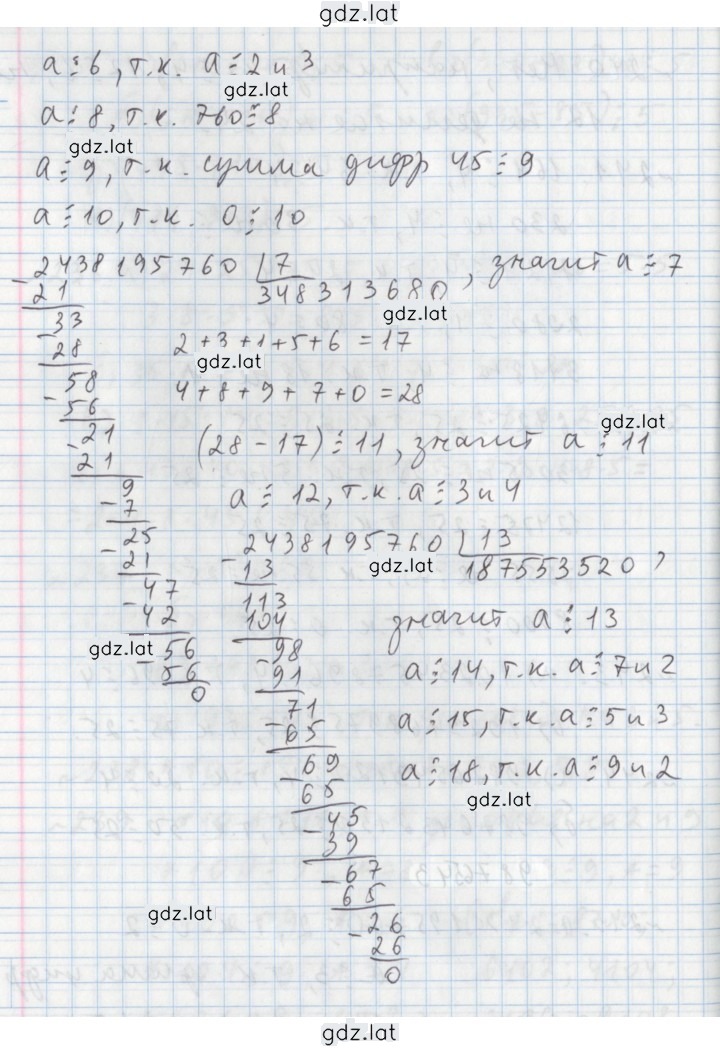 gdz.lat
a⋮6, т.к. a⋮2 и 3
gdz.lat
a⋮8, т.к. 760⋮8
gdz.lat
a⋮9, т.к. сумма цифр 45⋮9
a⋮10, т.к. 0⋮10
2438195760 | 7 , значит a⋮7
- 21 348313680
gdz.lat
33
- 28 2+3+1+5+6 = 17
gdz.lat
58 4+8+9+7+0 = 28
- 56
gdz.lat
21 (28-17)⋮11, значит a⋮11
- 21
9 a⋮12, т.к. a⋮3 и 4
- 7
25 2438195760 | 13
- 21 - 13 gdz.lat 187553520 ,
47 113
- 42 104 значит a⋮13
gdz.lat
- 56 98
56 - 91 a⋮14, т.к. a⋮7 и 2
0
71 a⋮15, т.к. a⋮5 и 3
- 65
69 a⋮18, т.к. a⋮9 и 2
- 65
gdz.lat
45
- 39
67
- 65
gdz.lat
26
- 26
0
gdz.lat